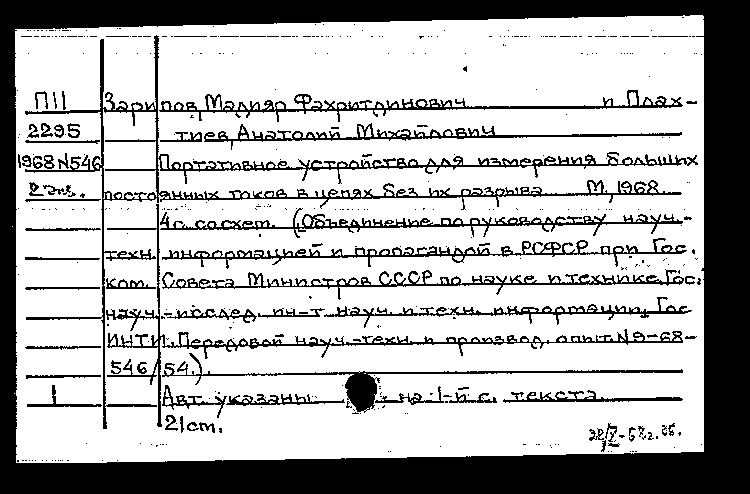 П11 Зарипов, Мадияр Фахритдинович и Плах-
2295 тиев, Анатолий Михайлович
1968 N546 Портативное устройство для измерения больших
2 экз. постоянных токов в цепях без их разрыва М., 1968.
4с. со схем. (Объединение по руководству науч.-
техн. информацией и пропагандой в РСФСР при Гос.
ком. Совета Министров СССР по науке и технике. Гос.
науч.-исслед. ин-т науч. и техн. информации. Гос
ИНТИ. Передовой науч.-техн. и производ. опыт. N 9-68-
546/54.).
1 Авт. указаны на 1-й с. текста.
21 cm.